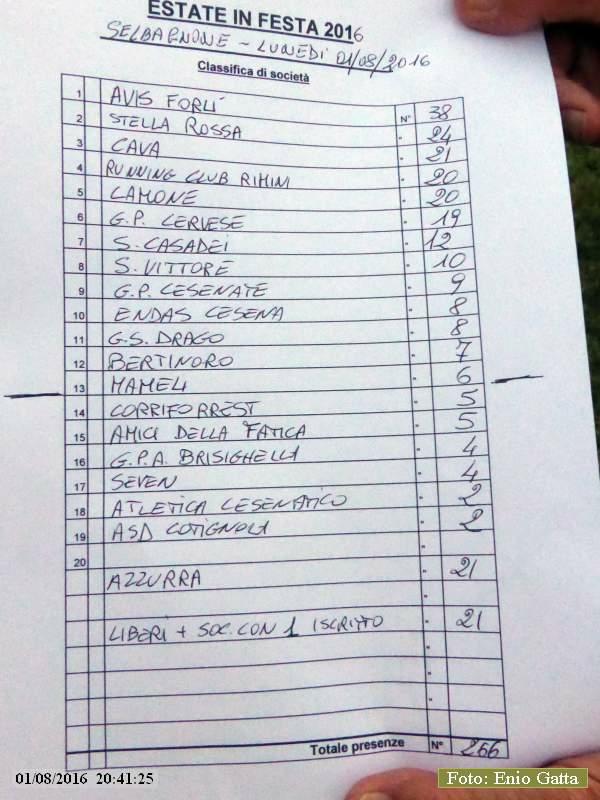 ESTATE IN FESTA 2016
SELBAGNONE - LUNEDì 01/08/2016
Classifica di società
1 AVIS FORLì N° 38
2 STELLA ROSSA " 24
3 CAVA " 21
4 RUNNING CLUB RIMINI " 20
5 LAMONE " 20
6 G.P. CERVESE " 19
7 S. CASADEI " 12
8 S. VITTORE " 10
9 G.P. CESENATE " 9
10 ENDAS CESENA " 8
11 G.S. DRAGO " 8
12 BERTINORO " 7
13 MAMELI " 6
14 CORRIFORREST " 5
15 AMICI DELLA FATICA " 5
16 G.P.A. BRISIGHELLA " 4
17 SEVEN " 4
18 ATLETICA CESENATICO " 2
19 ASD COTIGNOLA " 2
20 "
AZZURRA " 21
"
LIBERI + SOC. CON 1 ISCRITTO " 21
"
"
"
Totale presenze N° 266
01/08/2016 20:41:25
Foto: Enio Gatta